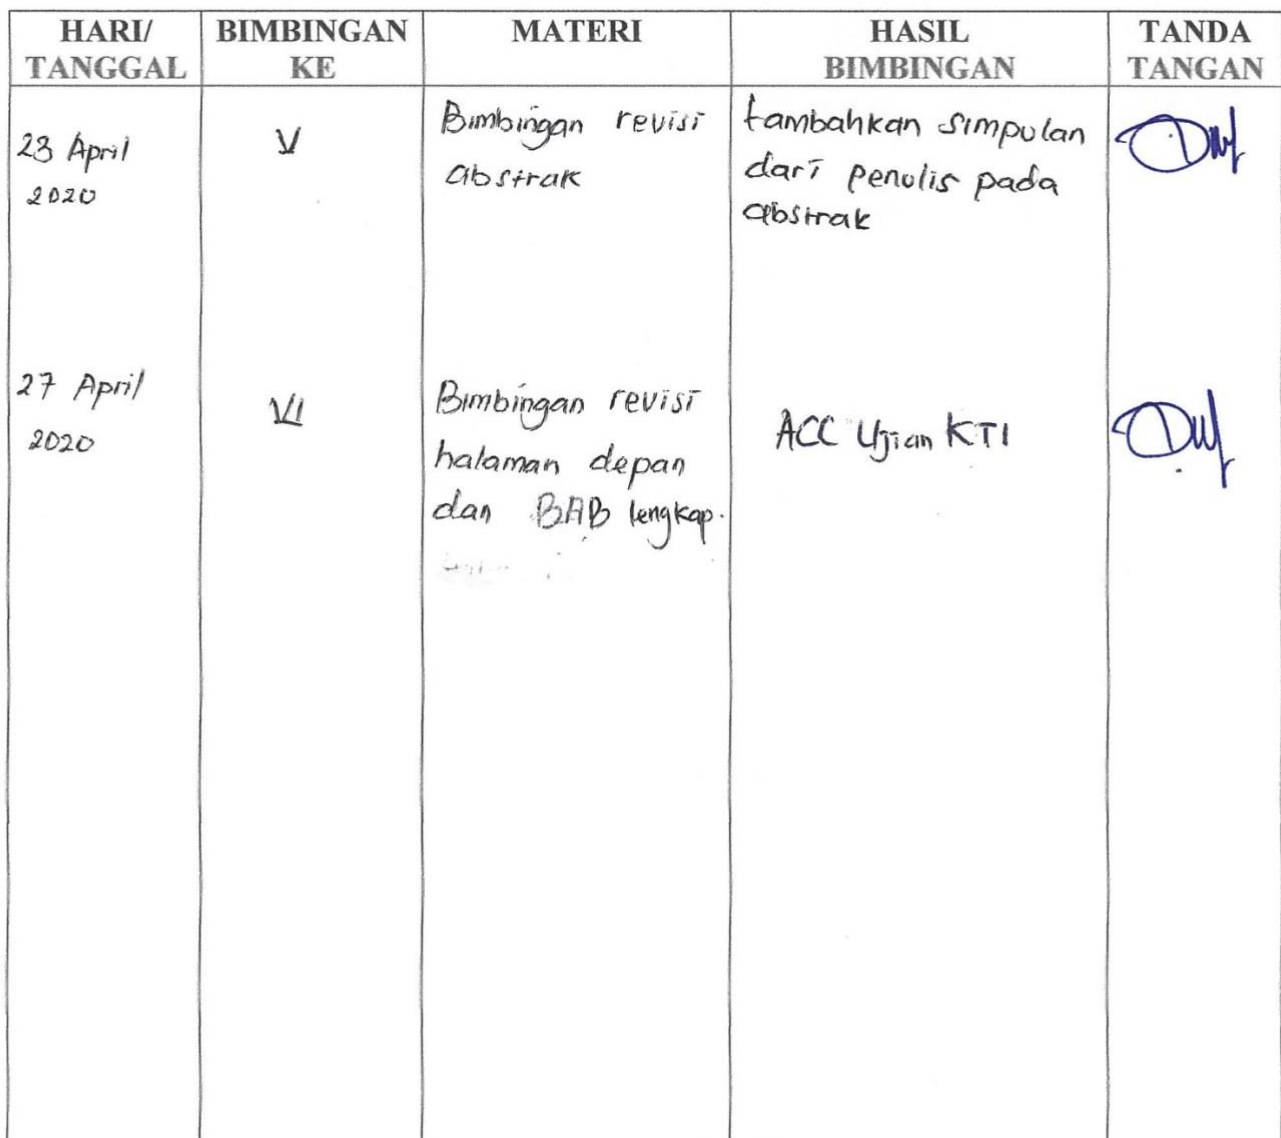 HARI/ TANGGAL
BIMBINGAN KE
MATERI
HASIL BIMBINGAN
TANDA TANGAN
23 April
2020
V
Bimbingan revisi
abstrak
tambahkan simpulan
dari penulis pada
abstrak
27 April
2020
VI
Bimbingan revisi
halaman depan
dan BAB lengkap.
ACC Ujian KTI